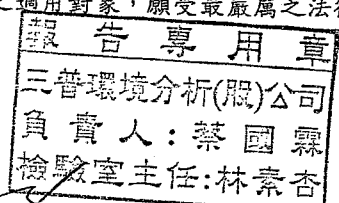 之適用對象，願受最嚴厲之法律
報告專用章
三普環境分析(股)公司
負責人:蔡國霖
檢驗室主任:林素杏